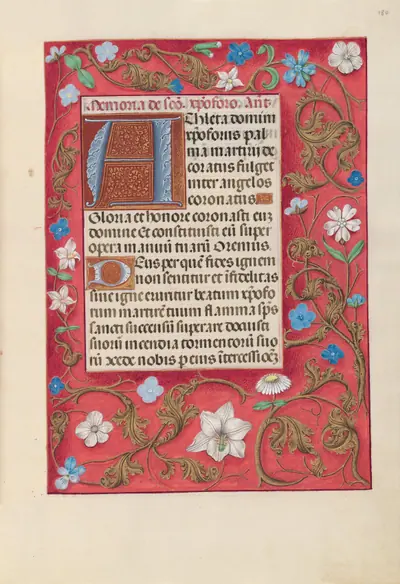 184
Memoria de sco. xpoforo. Ant.
Athleta domini
xpoforus pal
ma martirii de
coratus fulget
inter angelos
coronatus
Gloria et honore coronasti eū
domine Et constituisti eū super
opera manuū tuarū Oremus
Deus per quē fides ignem
non sentitur et ifidelitas
sine igne exuritur beatum xpofo
rum martirem tuum flamma sps
sancti succensū superare docuisti
suorū incendia tormentorū suo
rū xcede nobis p eius ītercessiōēz